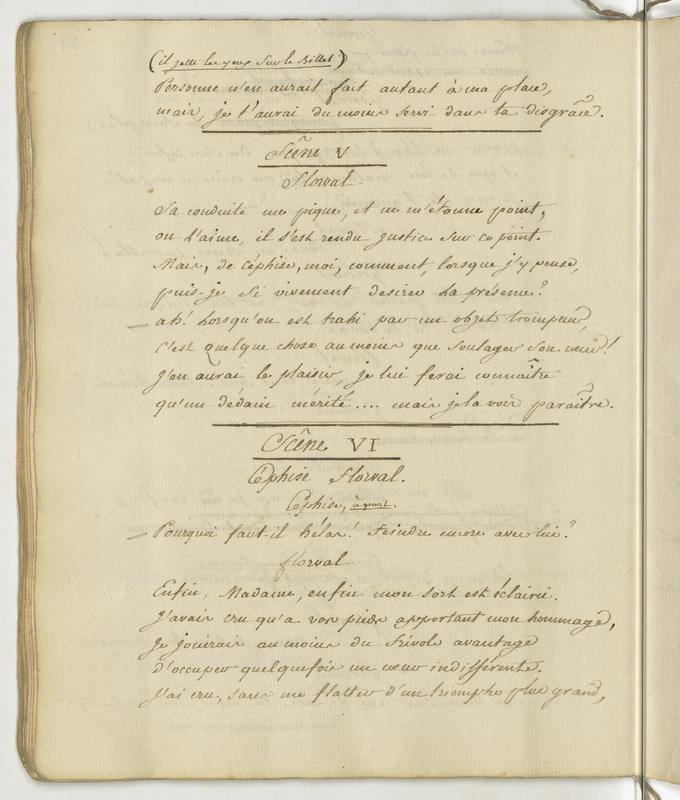 (il jette les yeux sur le Billet!)
Personne n'en aurait fait autant à ma place,
mais, je t'aurai du moins servi dans ta disgrâce.
Scêne V
Florval
Sa conduite me pique, et ne m'étonne point,
on l'aime, il s'est rendu justice sur ce point.
Mais, de Céphise, moi, comment, lorsque j'y pense,
puis-je si vivement desirer la présence?
ah! lorsqu'on est trahi par un objet trompeur,
c'est quelque chose au moins que soulager son coeur!
J'en aurai le plaisir, je lui ferai connaître
qu'un dédain mérité .... mais je la vois paraître.
Scêne VI
Céphise Florval.
Céphise, à part.
Pourquoi faut-il hélas! feindre encore avec lui?
florval
Enfin, Madame, enfin mon sort est éclairci.
J'avais cru qu'a vos pieds apportant mon hommage,
Je jouirais au moins du frivole avantage
d'occuper quelquefois un coeur indifférent.
J'ai cru, sans me flatter d'un triomphe plus grand,